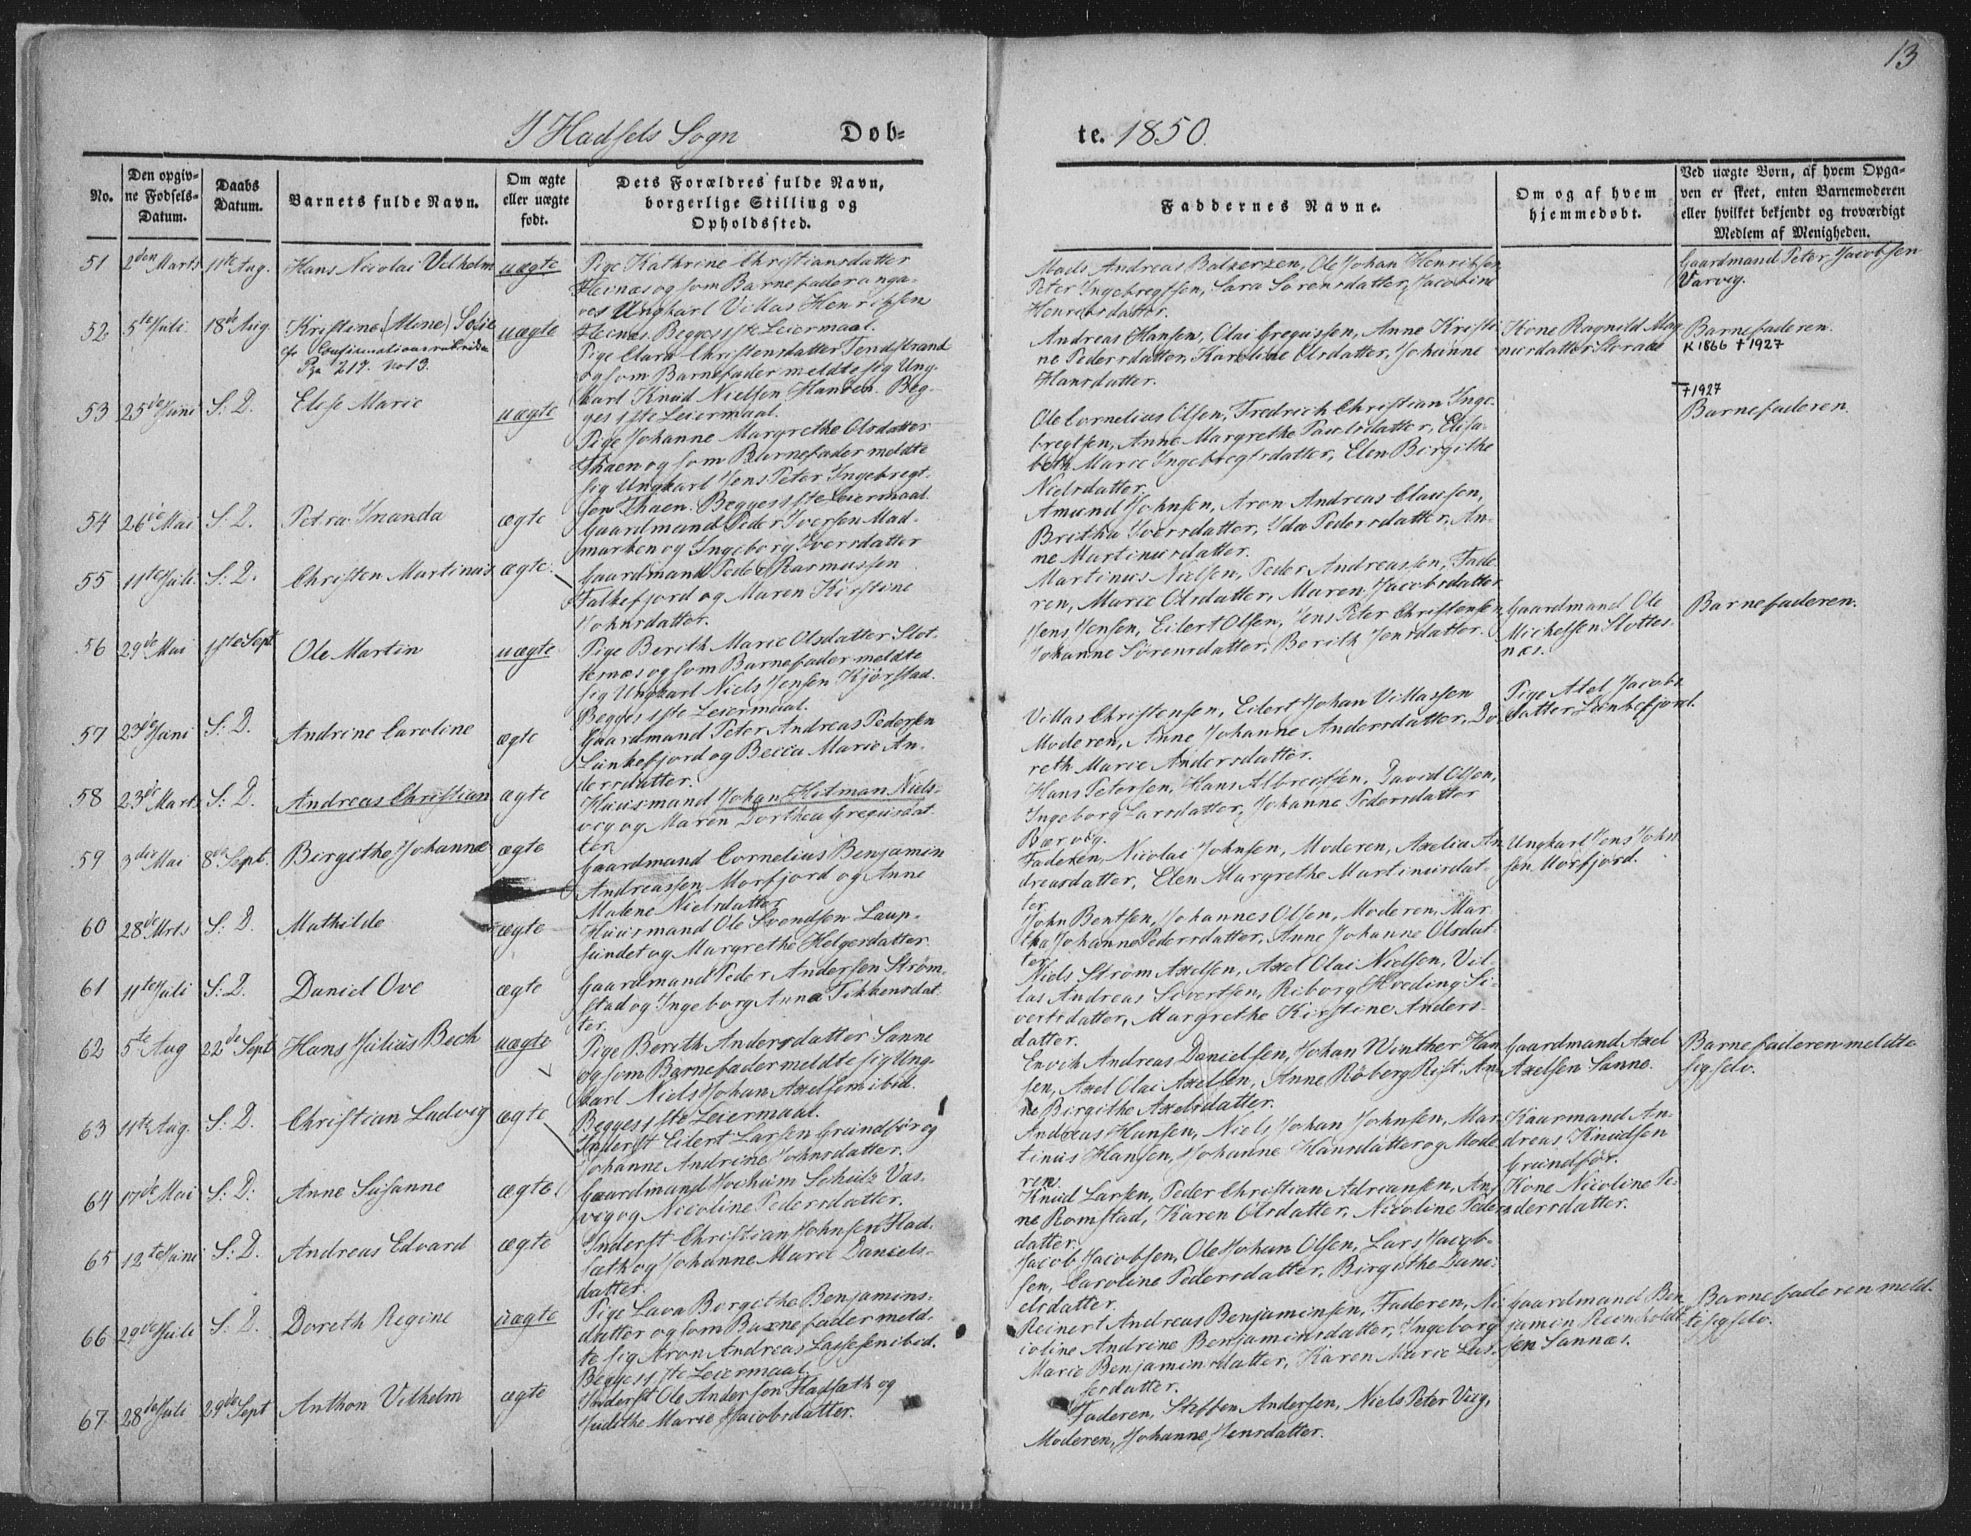 13
I Hadsels Sogn Døb=
te. 1850.
No.
Den opgiv-
ne Fødsels-
Datum.
Daabs
Datum.
Barnets fulde Navn.
Om ægte
eller uægte
født.
Dets Forældres fulde Navn,
borgerlige Stilling og
Opholdssted.
Faddernes Navne.
Om og af hvem
hjemmedøbt.
Ved uægte Børn, af hvem Opga-
ven er skeet, enten Barnemoderen
eller hvilket bekjendt og troværdigt
Medlem af Menigheden.
51 2den Marts 11te Aug. Hans Nicolai Vilhelm uægte
Pige Kathrine Christiansdatter
og som Barnefader anga-
ves Ungkarl Villas Henriksen
Begges 1ste Leiermaal.
Mads Andreas Balzersen, Ole Johan Henriksen
Peter Ingebregtsen, Sara Sørensdatter, Jacobine
Henriksdatter.
Gaardmand Peter Jacobsen
Varveg.
52 5te Juli 18de Aug. Kristine (Mone) Sofie uægte
cfr Confirmationsrubriken
Pga 219. No 13.
Pige Clara Christensdatter Tendstrand
og som Barnefader meldte sig Ung-
karl Knud Nielsen Hansen. Beg-
ges 1ste Leiermaal.
Andreas Hansen, Olai Gregussen, Anne Kristi-
ne Pedersdatter, Karoline Olsdatter, Johanne
Hansdatter.
Kone Ragnild Mag-
nusdatter
Barnefaderen.
K 1866 † 1927
53 25de Juni S. D. Elise Marie uægte
Pige Johanne Margrethe Olsdatter
Thaen og som Barnefader meldte
sig Ungkarl Jens Peter Ingebregt-
sen Thaen. Beggess 1ste Leiermaal.
Ole Cornelius Olsen, Fredrich Christian Inge-
bregtsen, Anne Margrethe Paulsdatter, Elisa-
beth Marie Ingebregtsdatter, Elen Birgithe
Nielsdatter.
† 1927
Barnefaderen.
54 26de Mai S. D. Petra Inanda ægte
Gaardmand Peder Iversen Mad-
marken og Ingeborg Iversdatter
Amund Johnsen, Aron Andreas Clausen,
Britha Iversdatter, Ida Pedersdatter, An-
ne Martinusdatter.
55 11te Juli S. D. Christen Martinus ægte.
Gaardmand Peder Rasmussen
Falkefjord og Maren Kirstine
Johnsdatter.
Martinus Nielsen, Peder Andreassen, Fade-
ren, Marie Olsdatter, Maren Jacobsdatter
56 29de Mai 1ste Sept. Ole Martin uægte
Pige Berith Marie Olsdatter Slot-
tesnæs og som Barnefader meldte
sig Ungkarl Niels Jensen Kjørstad.
Begges 1ste Leiermaal.
Jens Jensen, Eilert Olsen, Jens Peter Christensen
Johanne Sørensdatter, Berith Jensdatter.
Gaardmand Ole
Michelsen Slottes-
næs.
Barnefaderen.
57 23de Juni S. D. Andrine Caroline ægte
Gaardmand Peter Andreas Pedersen
Lunkefjord og Becca Marie An-
dersdatter.
Villas Christensen, Eilert Johan Villassen
Moderen, Anne Johanne Andersdatter, Do-
reth Marie Andersdatter.
Pige Abel Jacobs-
datter Lunkefjord.
58 23de Marts S. D. Andreas Christian ægte
Huusmand Johan Hitman Niels-
og Maren Dorthea Gregusdat-
ter
Hans Petersen, Hans Albregtsen, David Olsen,
Ingeborg Larsdatter, Johanne Pedersdatter
59 3die Mai 8de Sept. Birgithe Johanna ægte
Gaardmand Cornelius Benjamin
Andreassen Morfjord og Anne
Malene Nielsdatter
Faderen, Nicolai Johnsen, Moderen, Axelia An-
dreasdatter, Elen Margrethe Martinusdat-
ter
Ungkarl Jens John-
sen Morfjord.
60 28de Mrts S. D. Mathilde ægte
Huusmand Ole Svendsen Laup-
sundet og Margrethe Helgesdatter.
John Bentsen, Johannes Olsen, Moderen, Mar-
tha Johanne Pedersdatter, Anne Johanne Olsdat-
ter
61 11te Juli S. D. Daniel Ove ægte
Gaardmand Peder Andersen Strøm-
stad og Ingeborg Anna Tikkensdat-
ter.
Niels Strøm Axelsen, Axel Olai Nielsen, Vil-
las Andreas Sivertsen, Riborg Hveding Si-
vertsdatter, Margrethe Kirstine Anders-
datter.
62 5te Aug 22de Sept Hans Julius Bech uægte
Pige Berith Andersdatter Sanne
og som Barnefader meldte sig Ung-
karl Niels Johan Axelsen ibid.
Begges 1ste Leiermaal.
Enoch Andreas Danielsen, Johan Winther Han-
sen, Axel Olai Axelsen, Anne Røberg Rist An-
ne Birgithe Axelsdatter.
Gaardmand Axel
Axelsen Sanne.
Barnefaderen meldte
sig selv.
63 11te Aug. S. D. Christian Ludvig ægte
Inderst Eilert Larsen Grundfør og
Johanne Andrine Johnsdatter.
Andreas Hansen, Niels Johan Johnsen, Mar-
tinus Hansen, Johanne Hansdatter og Mode-
ren.
Kaarmand An-
dreas Knudsen
Grundfør.
64 17de Mai S. D. Anne Susanne ægte
Gaardmand Jochum Schulz Vas-
veg og Nicoline Pedersdatter.
Knud Larsen, Peder Christian Adriansen, An-
ne Romstad, Karen Olsdatter, Nicoline Peders-
datter.
Kone Nicoline Pe-
dersdatter.
65 12te Juni S. D. Andreas Edvard ægte
Inderst Christian Johnsen Flad-
sæth og Johanne Marie Daniels-
datter.
Jacob Jacobsen, Ole Johan Olsen, Lars Jacob-
sen, Caroline Pedersdatter, Birgithe Dani-
elsdatter.
66 29de Juli S. D. Doreth Regine uægte
Pige Lava Borgithe Benjamins-
datter og som Barnefader meld-
te sig Aron Andreas Lassesen ibid.
Begges 1ste Leiermaal.
Reinert Andreas Benjaminsen, Faderen, Ni-
coline Andrine Benjaminsdatter, Ingeborg
Marie Benjaminsdatter, Karen Marie Las-
sesdatter.
Gaardmand Ben-
jamin Reinholdt-
sen Sannæs.
Barnefaderen meld-
te sig selv.
67 28de Juli 29de Sept Anthon Vilhelm ægte
Inderst Ole Andersen Fladsæth og
Judithe Marie Jacobsdatter.
Faderen, Steffen Andersen, Niels Peter Viig,
Moderen, Johanne Jensdatter.